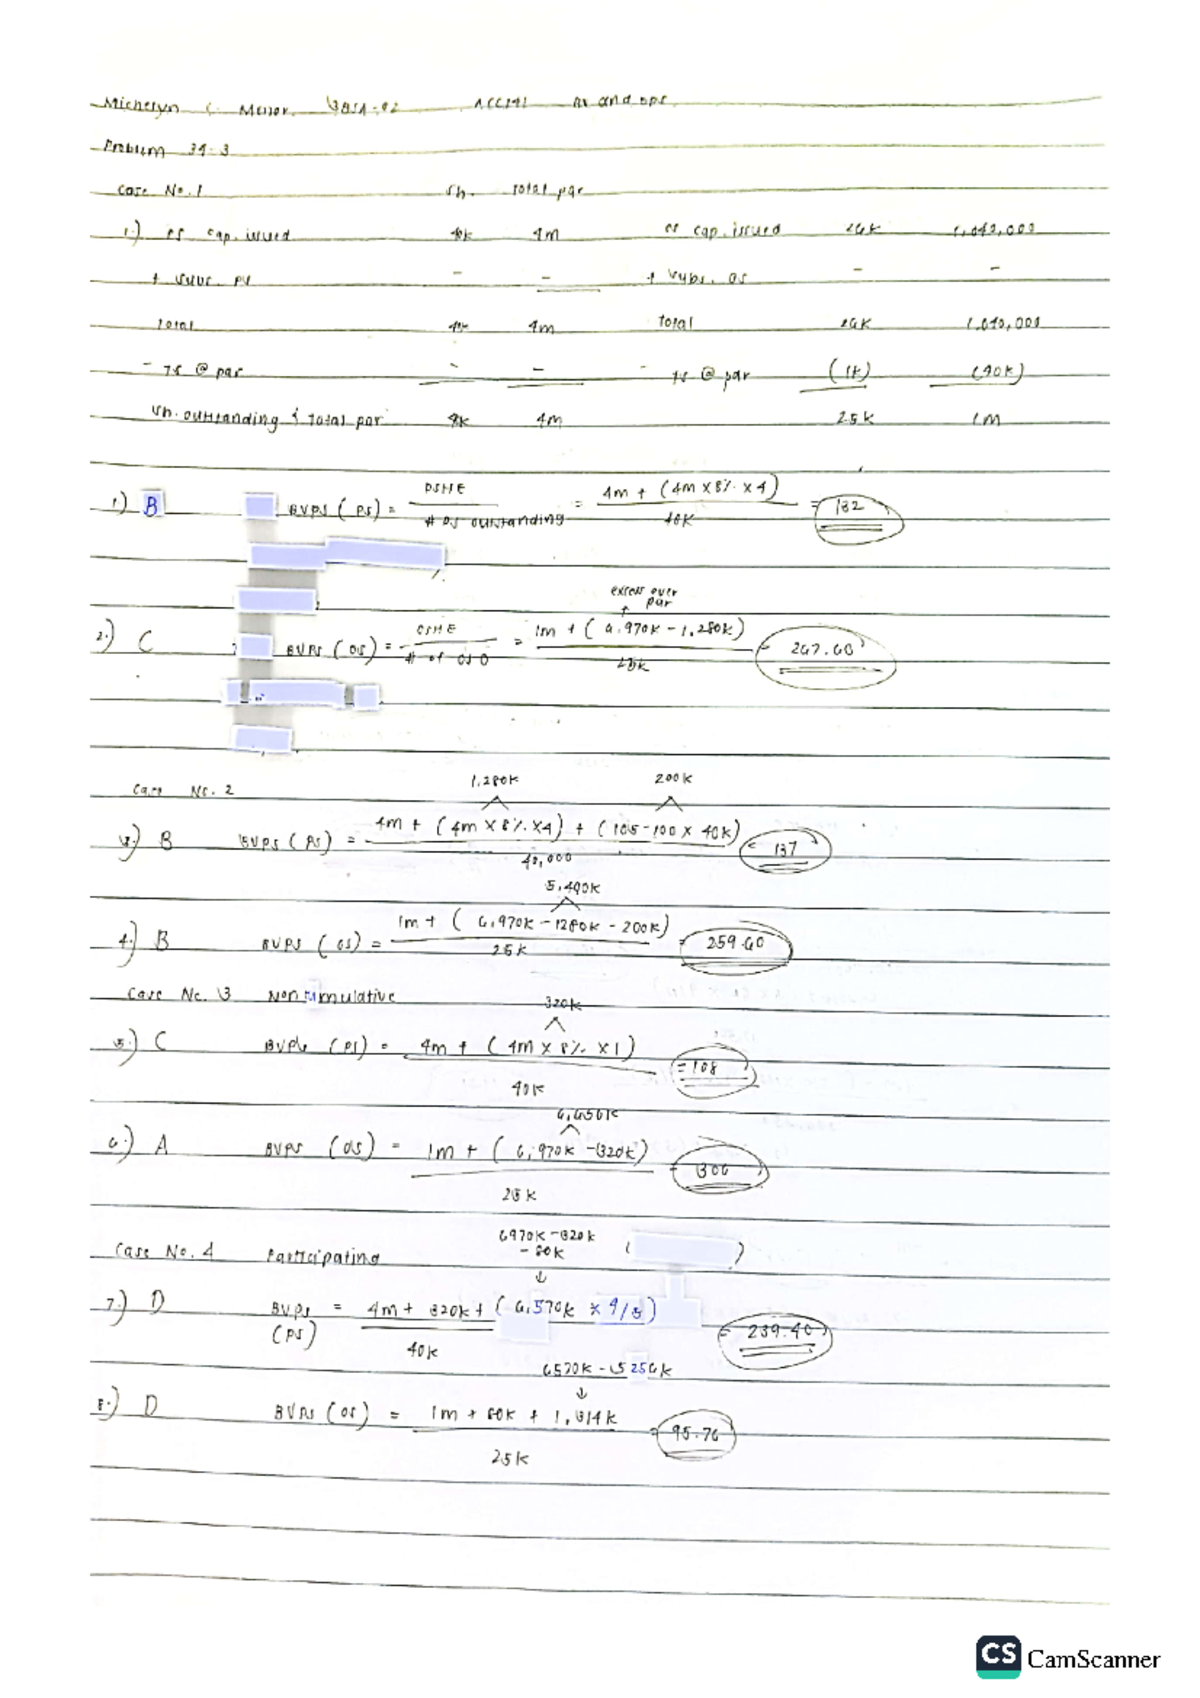 Michelyn C. Menor 3BSA-02 ACC141 BV and EPS
Problem 34-3
Case No. 1 sh. total par
1.) PS cap. issued 40k 4m OS cap. issued 26k 1,040,000
+ subs. PS - - + subs. OS - -
Total 40k 4m Total 26k 1,040,000
- TS @ par - - - TS @ par (1k) (40k)
sh. outstanding & total par 40k 4m 25k 1M
1) B BVPS (PS) = PSHE / # PS outstanding = 4m + (4m x 8% x 4) / 40k = 132
excess over par
2.) C BVPS (OS) = OSHE / # of OS O = 1m + (6,970k - 1,280k) / 25k = 267.60
Case No. 2 1,280k 200k
3.) B BVPS (PS) = 4m + (4m x 8% x 4) + (105-100 x 40k) / 40,000 = 137
5,490k
4.) B BVPS (OS) = 1m + (6,970k - 1280k - 200k) / 25k = 259.60
Case No. 3 Noncumulative 320k
5.) C BVPS (PS) = 4m + (4m x 8% x 1) / 40k = 108
6,650k
6.) A BVPS (OS) = 1m + (6,970k - 320k) / 25k = 306
6970k - 320k - 80k
Case No. 4 Participating ( )
7.) D BVPS (PS) = 4m + 320k + (6,570k x 4/5) / 40k = 239.40
6570k - 5256k
8.) D BVPS (OS) = 1m + 80k + 1,314k / 25k = 95.76
CS CamScanner